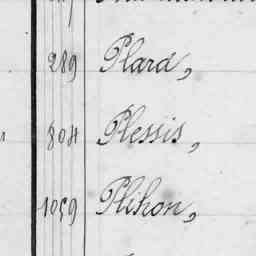 289 Plard,
804 Plessis,
1059 Plihon,